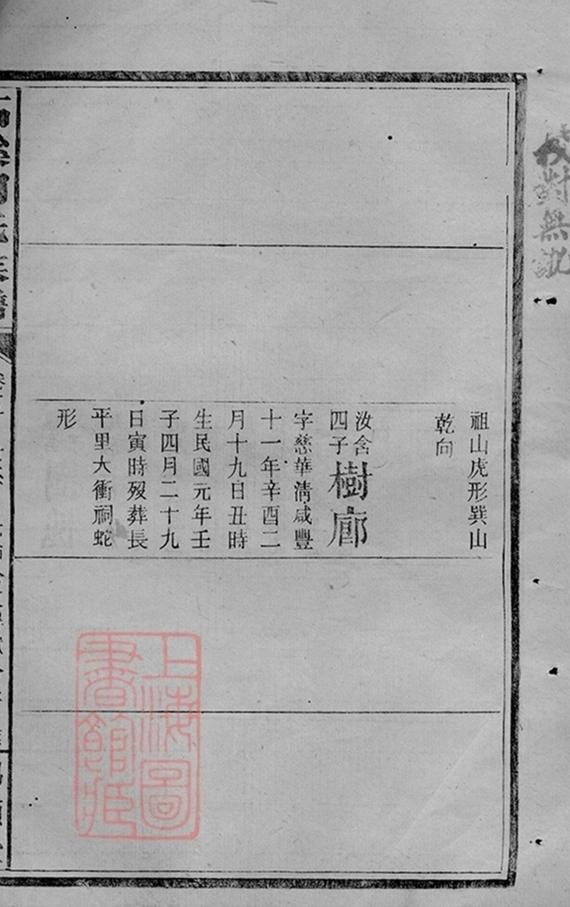 校對無訛
祖山虎形巽山
乾向
汝舍
四子
樹廊
字慈華清咸豐
十一年辛酉二
月十九日丑時
生民國元年壬
子四月二十九
日寅時歿葬長
平里大衝祠蛇
形
上海圖
書館藏